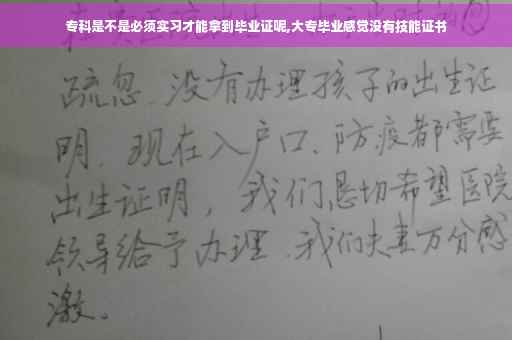 专科是不是必须实习才能拿到毕业证呢,大专毕业感觉没有技能证书
疏忽、没有办理孩子的出生证
明、现在入户口、防疫都需要
出生证明，我们恳切希望医院
领导给予办理、我们夫妻万分感
激。